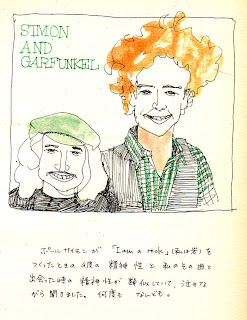 SIMON
AND
GARFUNKEL
ポールサイモンが 「I am a rock」(私は岩)を
つくったときの 彼の 精神性と 私のその曲と
出会った時の 精神性が 類似していて、泣きな
がら聞きました。何度も なんども。